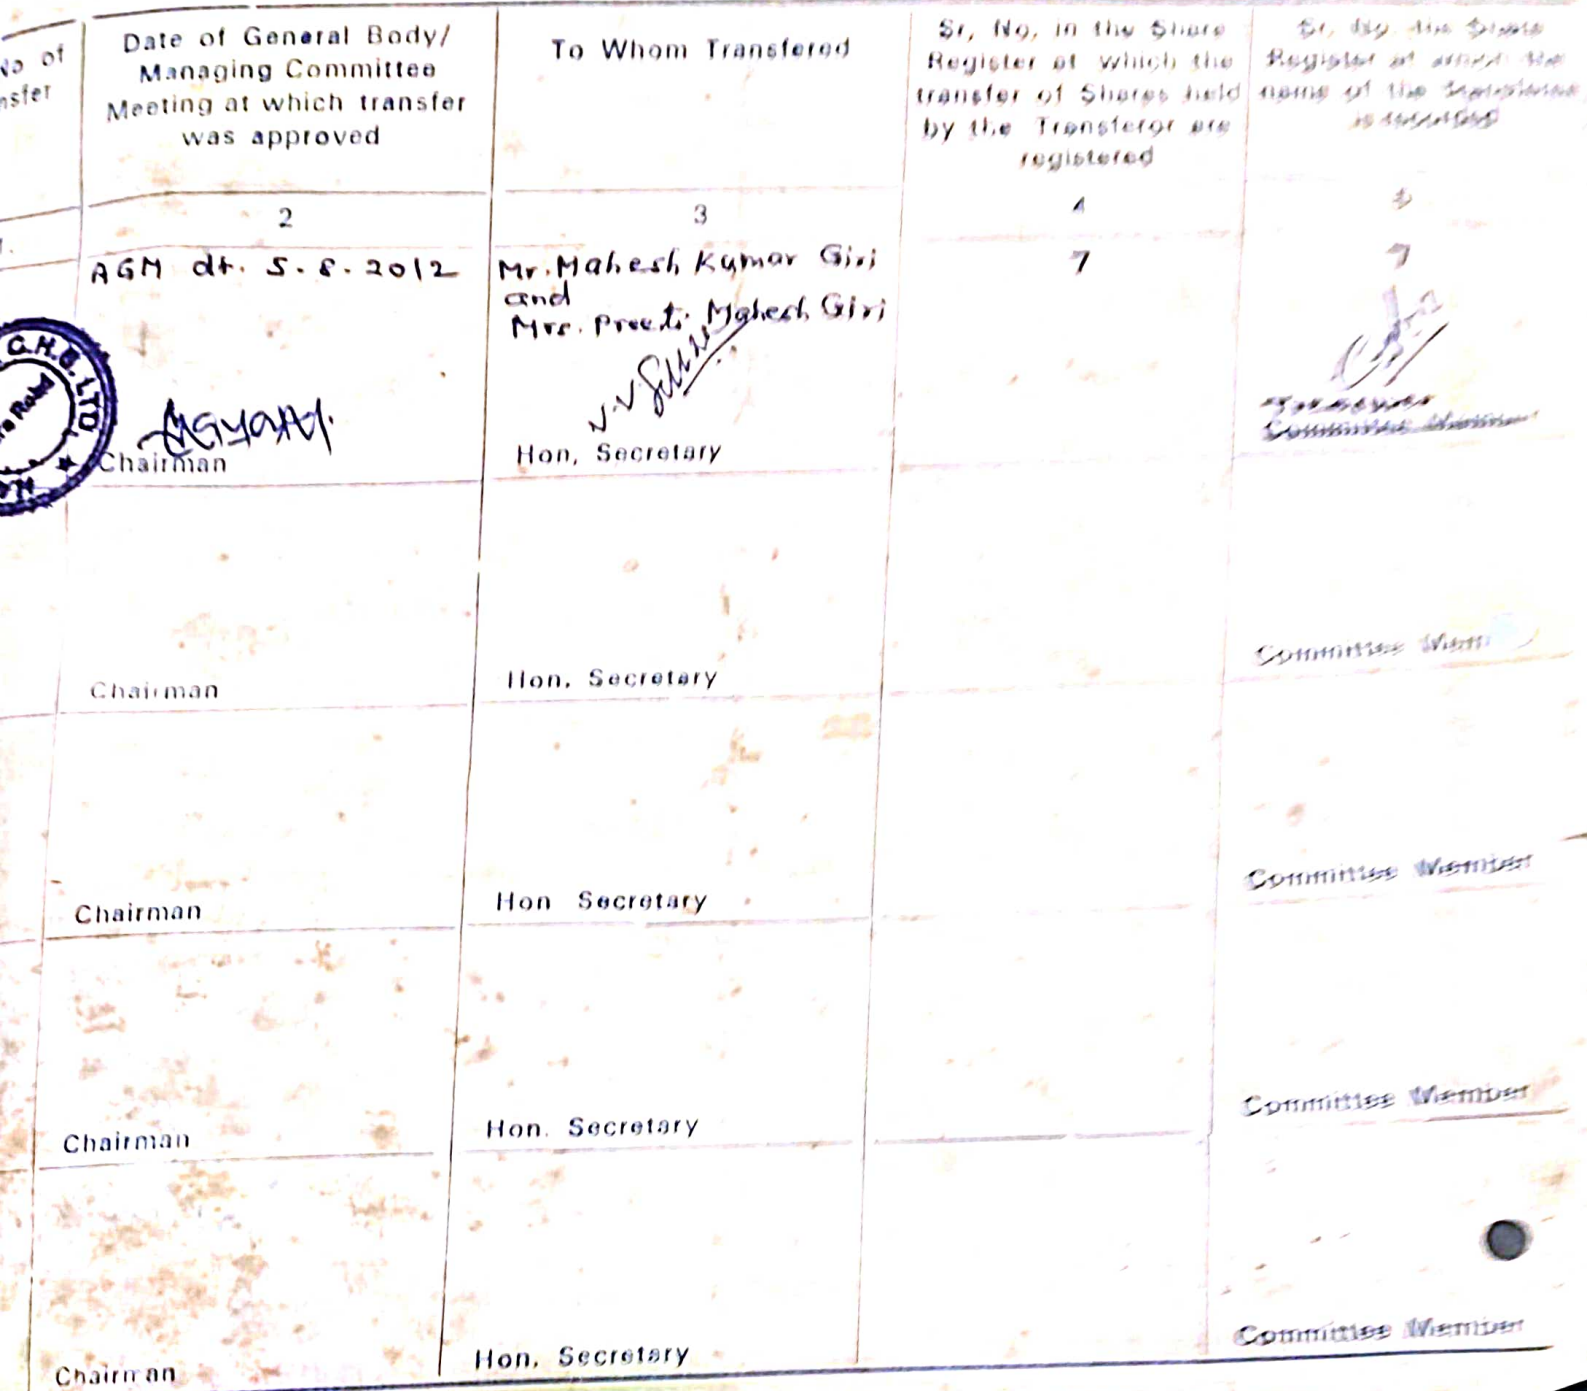 No of
nsfer
Date of General Body/
Managing Committee
Meeting at which transfer
was approved
To Whom Transfered
Sr, No, in the Share
Register at which the
transfer of Shares held
by the Transferor are
registered
Sr, No. the Share
Register at the
name of the
2
3
4
5
AGM dt. 5.8.2012
Mr. Mahesh Kumar Giri
and
Mrs. Preeti Mahesh Giri
7
7
C.H.S. LTD.
Road
Chairman
Hon, Secretary
Committee Member
Chairman
Hon. Secretary
Committee Mem
Chairman
Hon Secretary
Committee Member
Chairman
Hon. Secretary
Committee Member
Chairman
Hon. Secretary
Committee Member